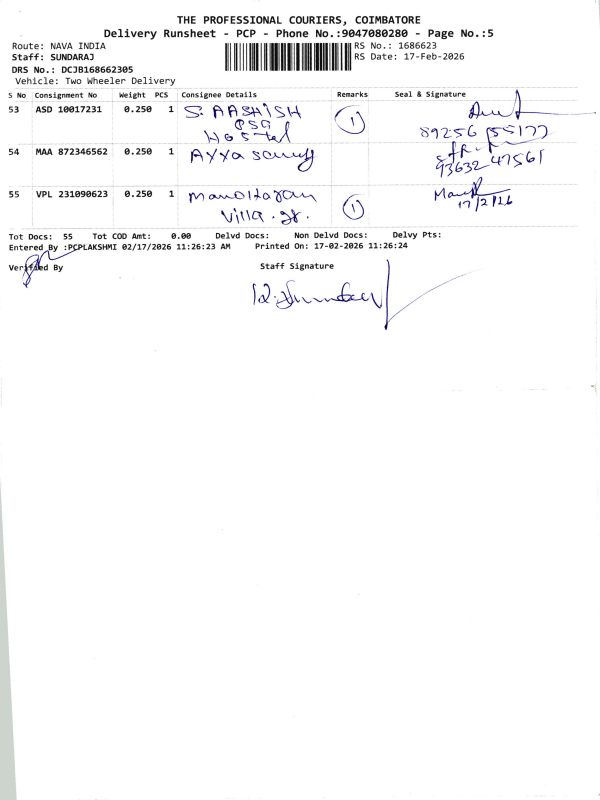 THE PROFESSIONAL COURIERS, COIMBATORE
Delivery Runsheet - PCP - Phone No.:9047080280 - Page No.:5
Route: NAVA INDIA RS No.: 1686623
Staff: SUNDARAJ RS Date: 17-Feb-2026
DRS No.: DCJB168662305
Vehicle: Two Wheeler Delivery
S No Consignment No Weight PCS Consignee Details Remarks Seal & Signature
53 ASD 10017231 0.250 1 S. AASHISH 1
PSG
Hostel 89256 55177
54 MAA 872346562 0.250 1 Ayya samy 93632 47561
55 VPL 231090623 0.250 1 Manoharan
Villa. 1 17/2/26
Tot Docs: 55 Tot COD Amt: 0.00 Delvd Docs: Non Delvd Docs: Delvy Pts:
Entered By :PCPLAKSHMI 02/17/2026 11:26:23 AM Printed On: 17-02-2026 11:26:24
Verified By Staff Signature